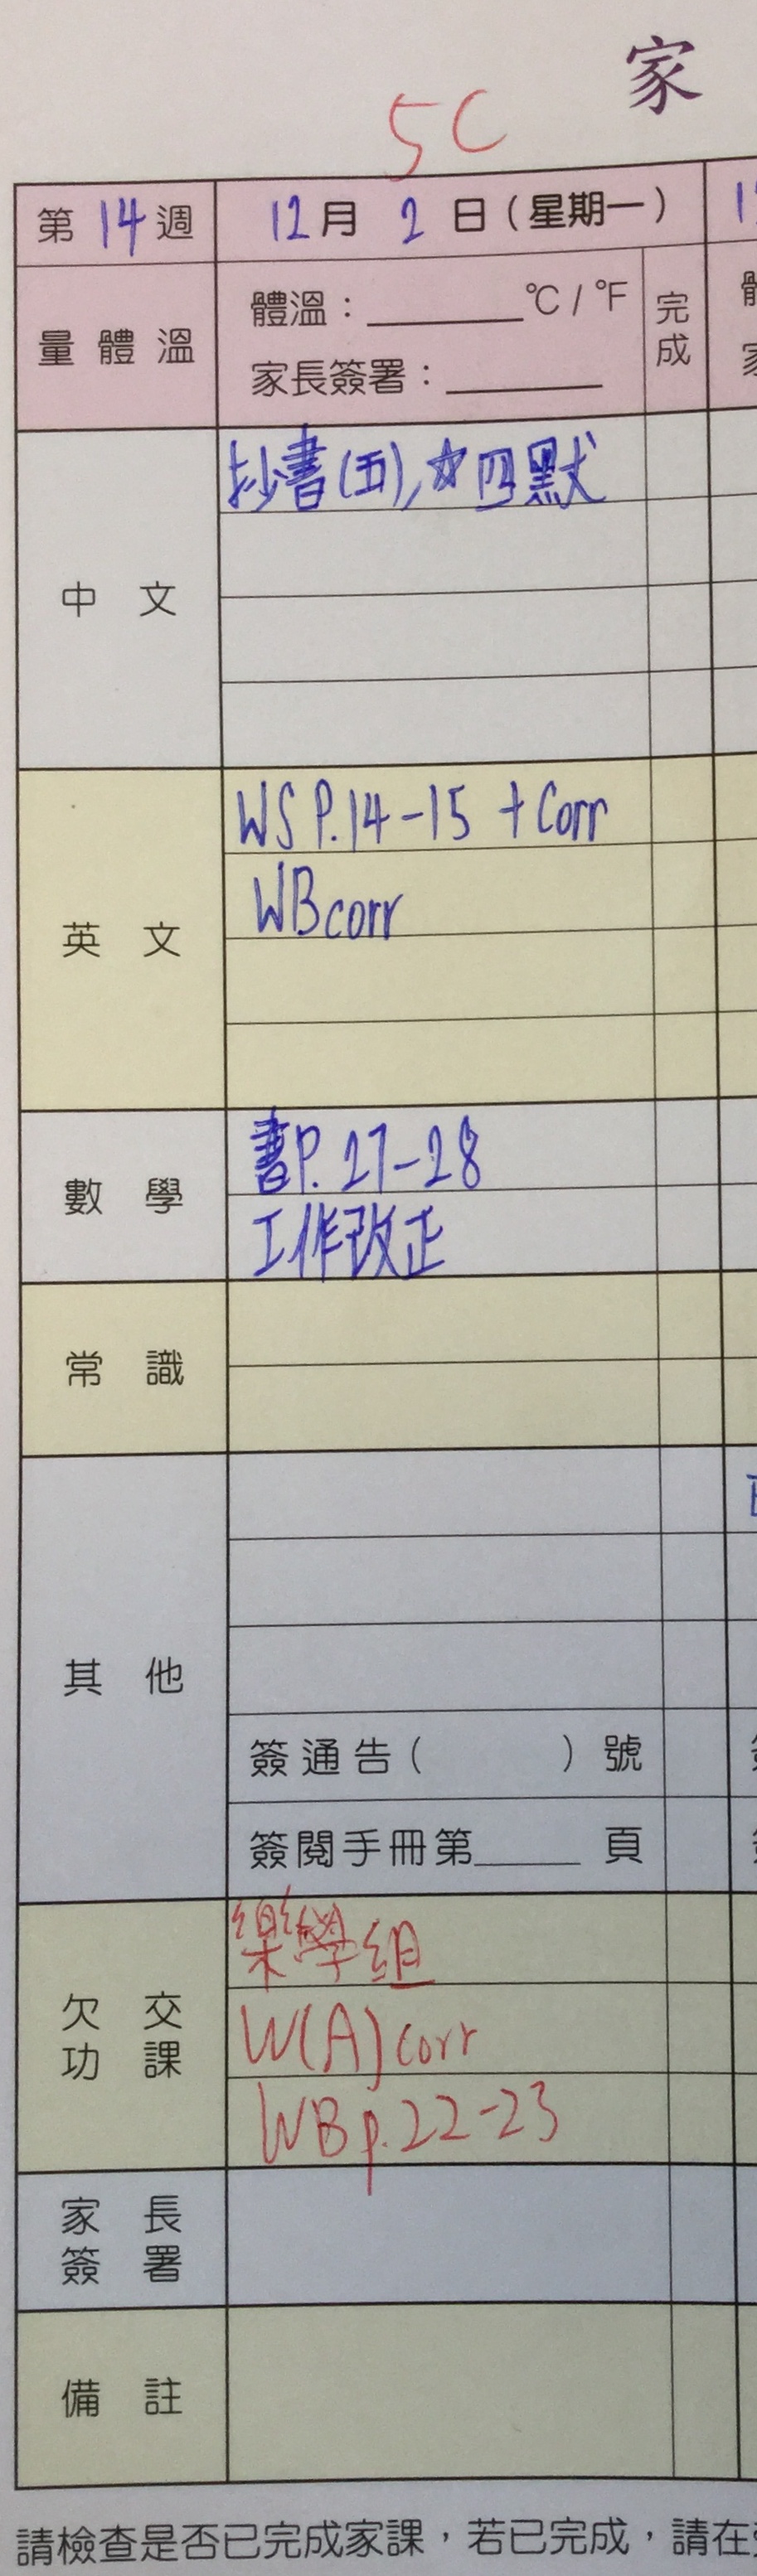 家
5C
第14週 12月2日(星期一)
量體溫 體溫：______℃/℉ 完成
家長簽署：______
中文 抄書(五),☆四默
英文 WS P.14-15 + Corr
WB corr
數學 書P.27-28
工作改正
常識
其他
簽通告( )號
簽閱手冊第____頁
欠交功課 樂學組
W(A) corr
WB p.22-23
家長簽署
備註
請檢查是否已完成家課，若已完成，請在